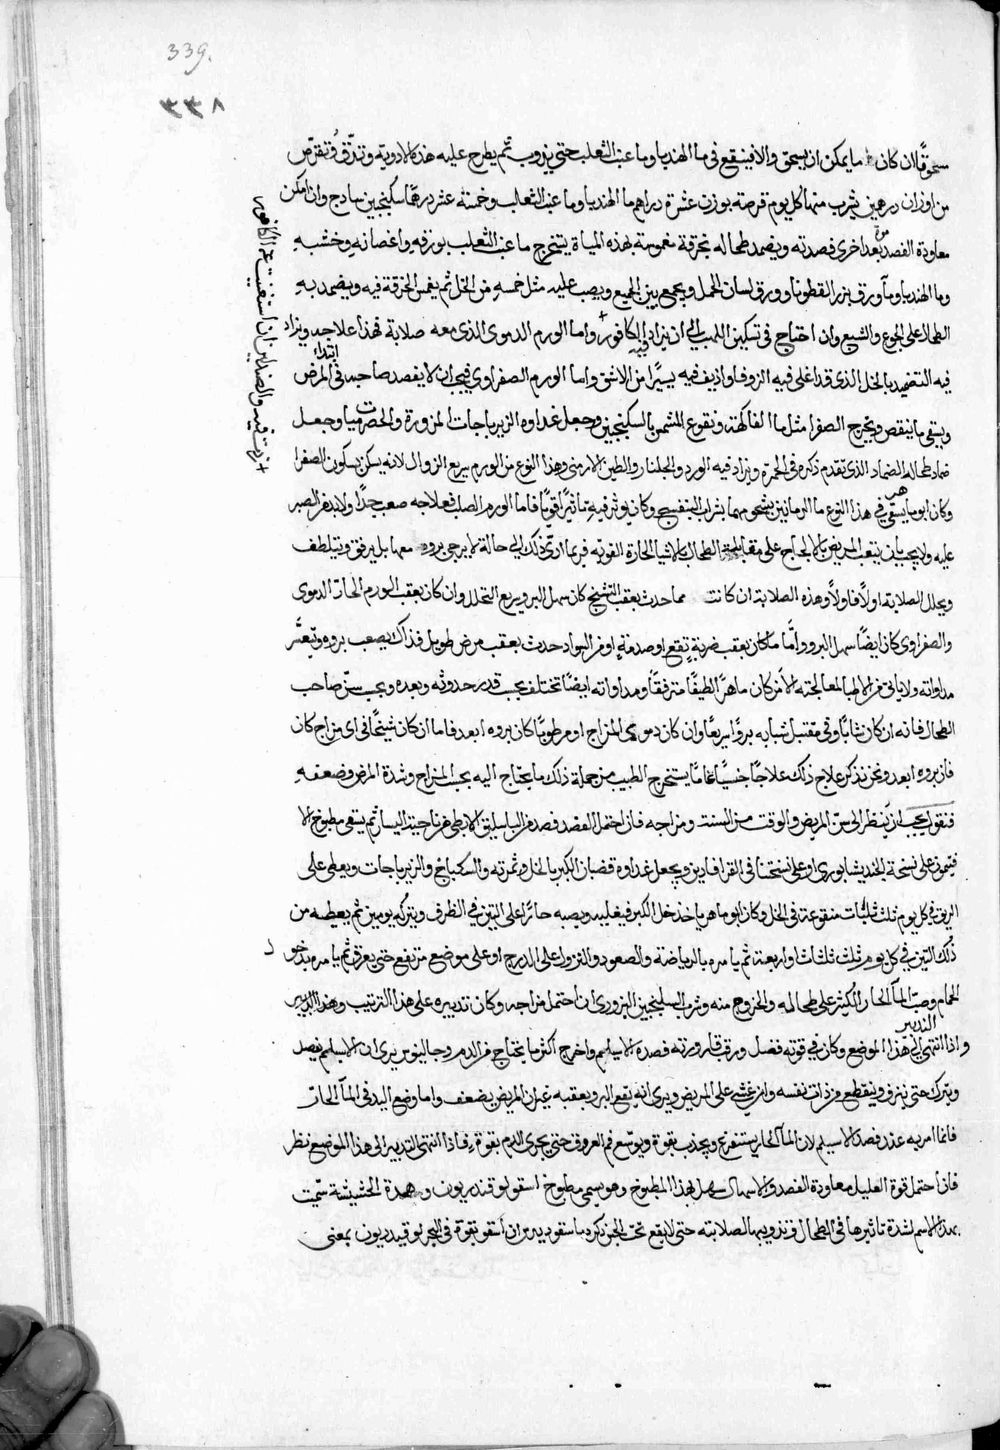 339.
٣٣٨
سحوقًا ان كان مما يمكن ان يسحق والا فينقع فى ما الهندبا وما عنب الثعلب حتى يذوب ثم يطرح عليه هذه الادوية وتدق وتقرص
من اوزان درهمين يشرب منها كل يوم قرصة بوزن عشرة دراهم ما الهندبا وما عنب الثعلب وخمسة عشر درهما سكنجبين ساذج وان امكن
معاودة الفصد مرة بعد اخرى فصدته ويضمد طحاله بخرقة مغموسة بهذه المياة يستخرج ما عنب الثعلب بورقه واغصانه وخشبه
وما الهندبا وما ورق بزر القطونا وورق لسان الحمل ويجمع بين الجميع ويصب عليه مثل خمسه من الخل ثم يغمس الخرقة فيه ويضمد به
الطحال على الجوع والشبع وان احتاج فى تسكين اللهب الى ان يزاد فيه الكافور واما الورم الدموى الذى معه صلابة فهذا علاجه ويزاد
زدت فيه والصندلين ان استغنيت عن الكافور
فيه التضميد بالخل الذى قد اغلى فيه الزوفا واذيف فيه يسيرًا من الاشق واما الورم الصفراوى فيجب ان لا يفصد صاحبه فى ابتداء المرض
ويسقى ما ينقص ويخرج الصفرا مثل ما الفاكهة ونقوع المشمش بالسكنجبين وجعل غداوه الزيرباجات المزورة والحصرميات وجعل
ضماد طحاله الضماد الذى تقدم ذكره فى الحمرة ويزاد فيه الورد والجلنار والطين الارمنى وهذا النوع من الورم سريع الزوال لانه يسكن بسكون الصفرا
وكان ابو ماهر يسقى فى هذا النوع ما الرمانين بشحومهما بشراب البنفسج وكان يوثر فيه تاثيرًا قويًا فاما الورم الصلب فعلاجه صعب جدًا ولا بد من الصبر
عليه ولا يجب ان يتعب المريض بالالحاح على مقابلة الطحال بالاشيا الحارة القوية فربما ادى ذلك الى حالة لا يرجى بروه معها بل يرفق ويتلطف
ويحلل الصلابة اولًا فاولًا وهذه الصلابة ان كانت مما حدث بعقب التشنج كان سهل البرو سريع التحلل وان كان بعقب الورم الحار الدموى
والصفراوى كان ايضًا سهل البرو واما ما كان بعقب ضربةٍ تقع او صدمةٍ او حدث بعقب مرض طويل فذاك يصعب بروه وتعسّر
مداواته ولا ياتى من الاطبا لمعالجته الا من كان ماهرًا لطيفًا مترفقًا ومداواته ايضًا تختلف بحسب قدر حدوثه وبعده وبحسب سنّ صاحب
الطحال فانه ان كان شابًا وفى مقتبل شبابه برؤًا سريعًا وان كان دموى المزاج او مرطوبًا كان بروه ابعد فاما ان كان شيخًا فى اى مزاج كان
فان بروه ابعد ونحن نذكر علاج ذلك علاجًا جنسيًا عاميًا يستخرج الطبيب من جملة ذلك ما يحتاج اليه بحسب المزاج وشدة المرض وضعفه
فنقول يجب ان ينظر الى سنّ المريض والوقت من السنة ومزاجه فان احتمل الفصد فصد من الباسليق الابطى من ناحية اليسار ثم يسقى مطبوخ الا
فتيمون على نسخة الجنديسابورى او على نسختنا فى القرافادين ويجعل غداوه قضبان الكبر بالخل وثمرته والسكباج والزيرباجات ويعطى على
الريق فى كل يوم ثلث ثلثات منقوعة فى الخل وكان ابو ماهر ياخذ خل الكبر فيغليه ويصبه حارًا على التين فى الظرف ويتركه يومين ثم يعطيه من
ذلك التين فى كل يوم ثلث ثلثات او اربعة ثم يامره بالرياضة والصعود والنزول على الدرج او على موضع مرتفع حتى يعرق ثم يامره بدخو ل
الحمام وصب الما الحار الكثير على طحاله والخروج منه وشرب السكنجبين البزورى ان احتمل مزاجه وكان تدبيره على هذا الترتيب وهذا التدبير
واذا انتهى التدبير الى هذا الموضع وكان فى قوته فضل ورقب قارورته فصده الاسيلم واخرج اكثر ما يحتاج من الدم وجالينوس يرى ان الاسيلم يفصد
ويترك حتى ينزف وينقطع من ذات نفسه وان غشى على المريض ويرى انه يقع البرو بعقبه غير ان المريض يضعف واما وضع اليد فى الما الحار
فانما امر به عند فصد الاسيلم لان الما الحار يستفرغ ويجذب بقوة ويوسّع فم العروق حتى يجرى الدم بقوة فاذا انتهى التدبير الى هذا الموضع نظر
فان احتمل قوة العليل معاودة الفصد والاسهال سهل بهذا المطبوخ وهو يسمى مطبوخ اسقولوقندريون وهذه الحشيشة سميت
بهذا الاسم لشدة تاثيرها فى الطحال وتذويبها لصلابته حتى لا يقع تحت الجس ذكر دياسقوريدس ان اسقو بقوة فى البحر لوقيدريون بمعنى